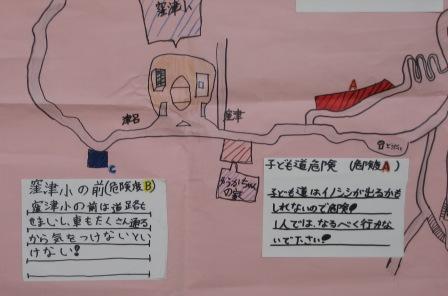 窪津小
津呂
窪津
A
C
窪津小の前(危険度B)
窪津小の前は道路も
せまいし、車もたくさん通る
から気をつけないとい
けない!
子ども道危険 (危険度A)
子ども道はイノシシが出るかも
しれないので危険!
1人では、なるべく行かな
いで下さい!